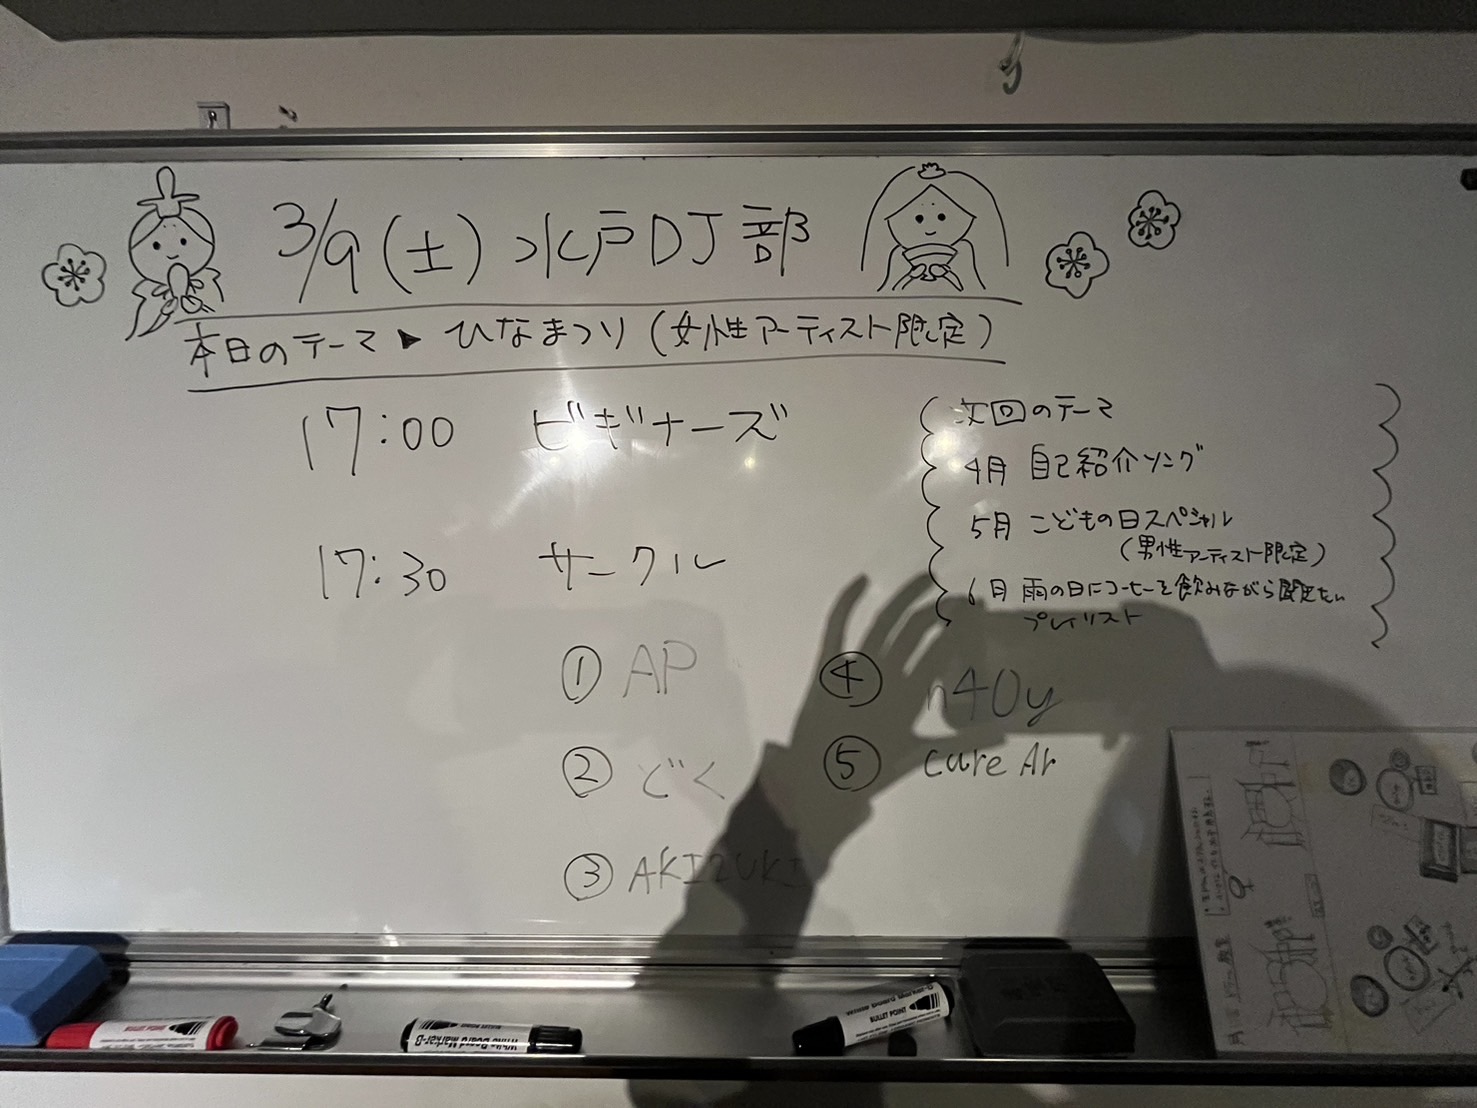 3/9(土)水戸DJ部
本日のテーマ▶ひなまつり(女性アーティスト限定)
17:00 ビギナーズ
17:30 サークル
① AP
② どく
③ AKIZUKI
④ n40y
⑤ cure Ar
次回のテーマ
4月 自己紹介ソング
5月 こどもの日スペシャル
(男性アーティスト限定)
6月 雨の日にコーヒーを飲みながら聴きたい
プレイリスト
BULLET POINT
White Board Marker-B
BULLET POINT